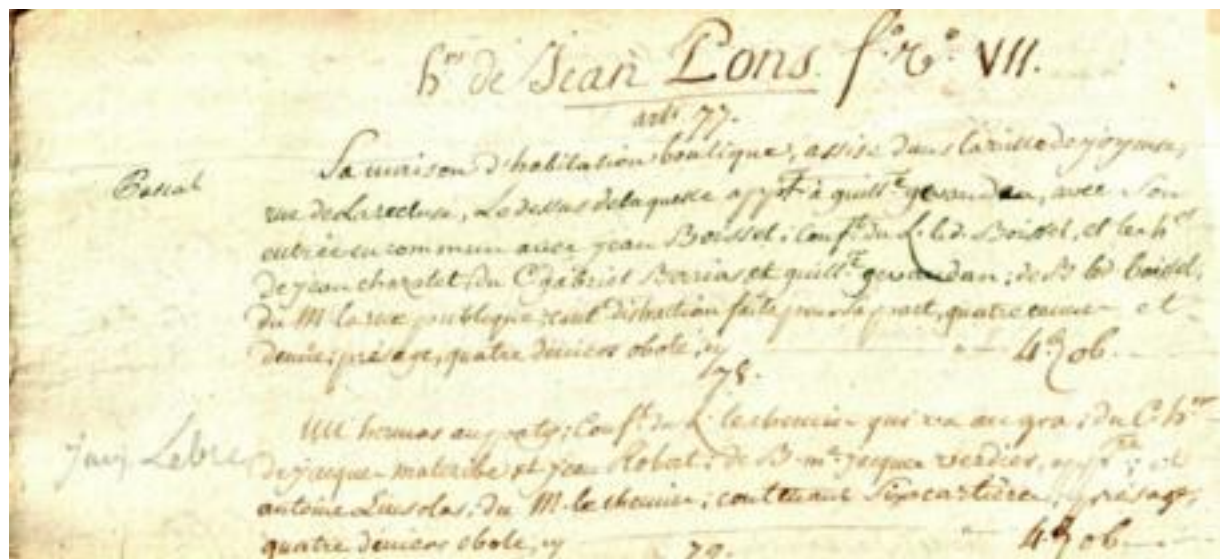 h.rs de Jean Pons. f.o r.o VII.
art. 77.
Sa maison d'habitation boutique, assise dans la ville de joyeuse,
Pascal
rue de la recluse, Le dessus de laquelle app.t à guill.e gevaudan, avec son
entrée en commun avec jean Boissel; conf.t du L. led. Boissel, et les h.rs
de jean chazalet; du C. gabriel Borrias et guill.e gevaudan; de B. led. boissel,
du M. la rue publique; cont. distraction faite pour sa part, quatre et
demie; présage, quatre deniers obole, cy 4 d ob.
78.
Un hermas au; conf.t du L. le chemin qui va au gra; du C. h.rs
Lebre
de jacques et jean Robert; de B. m.e jacques verdier, et
antoine; du M. le chemin; contenant six cartières; présage,
quatre deniers obole, cy 4 d ob.
79.